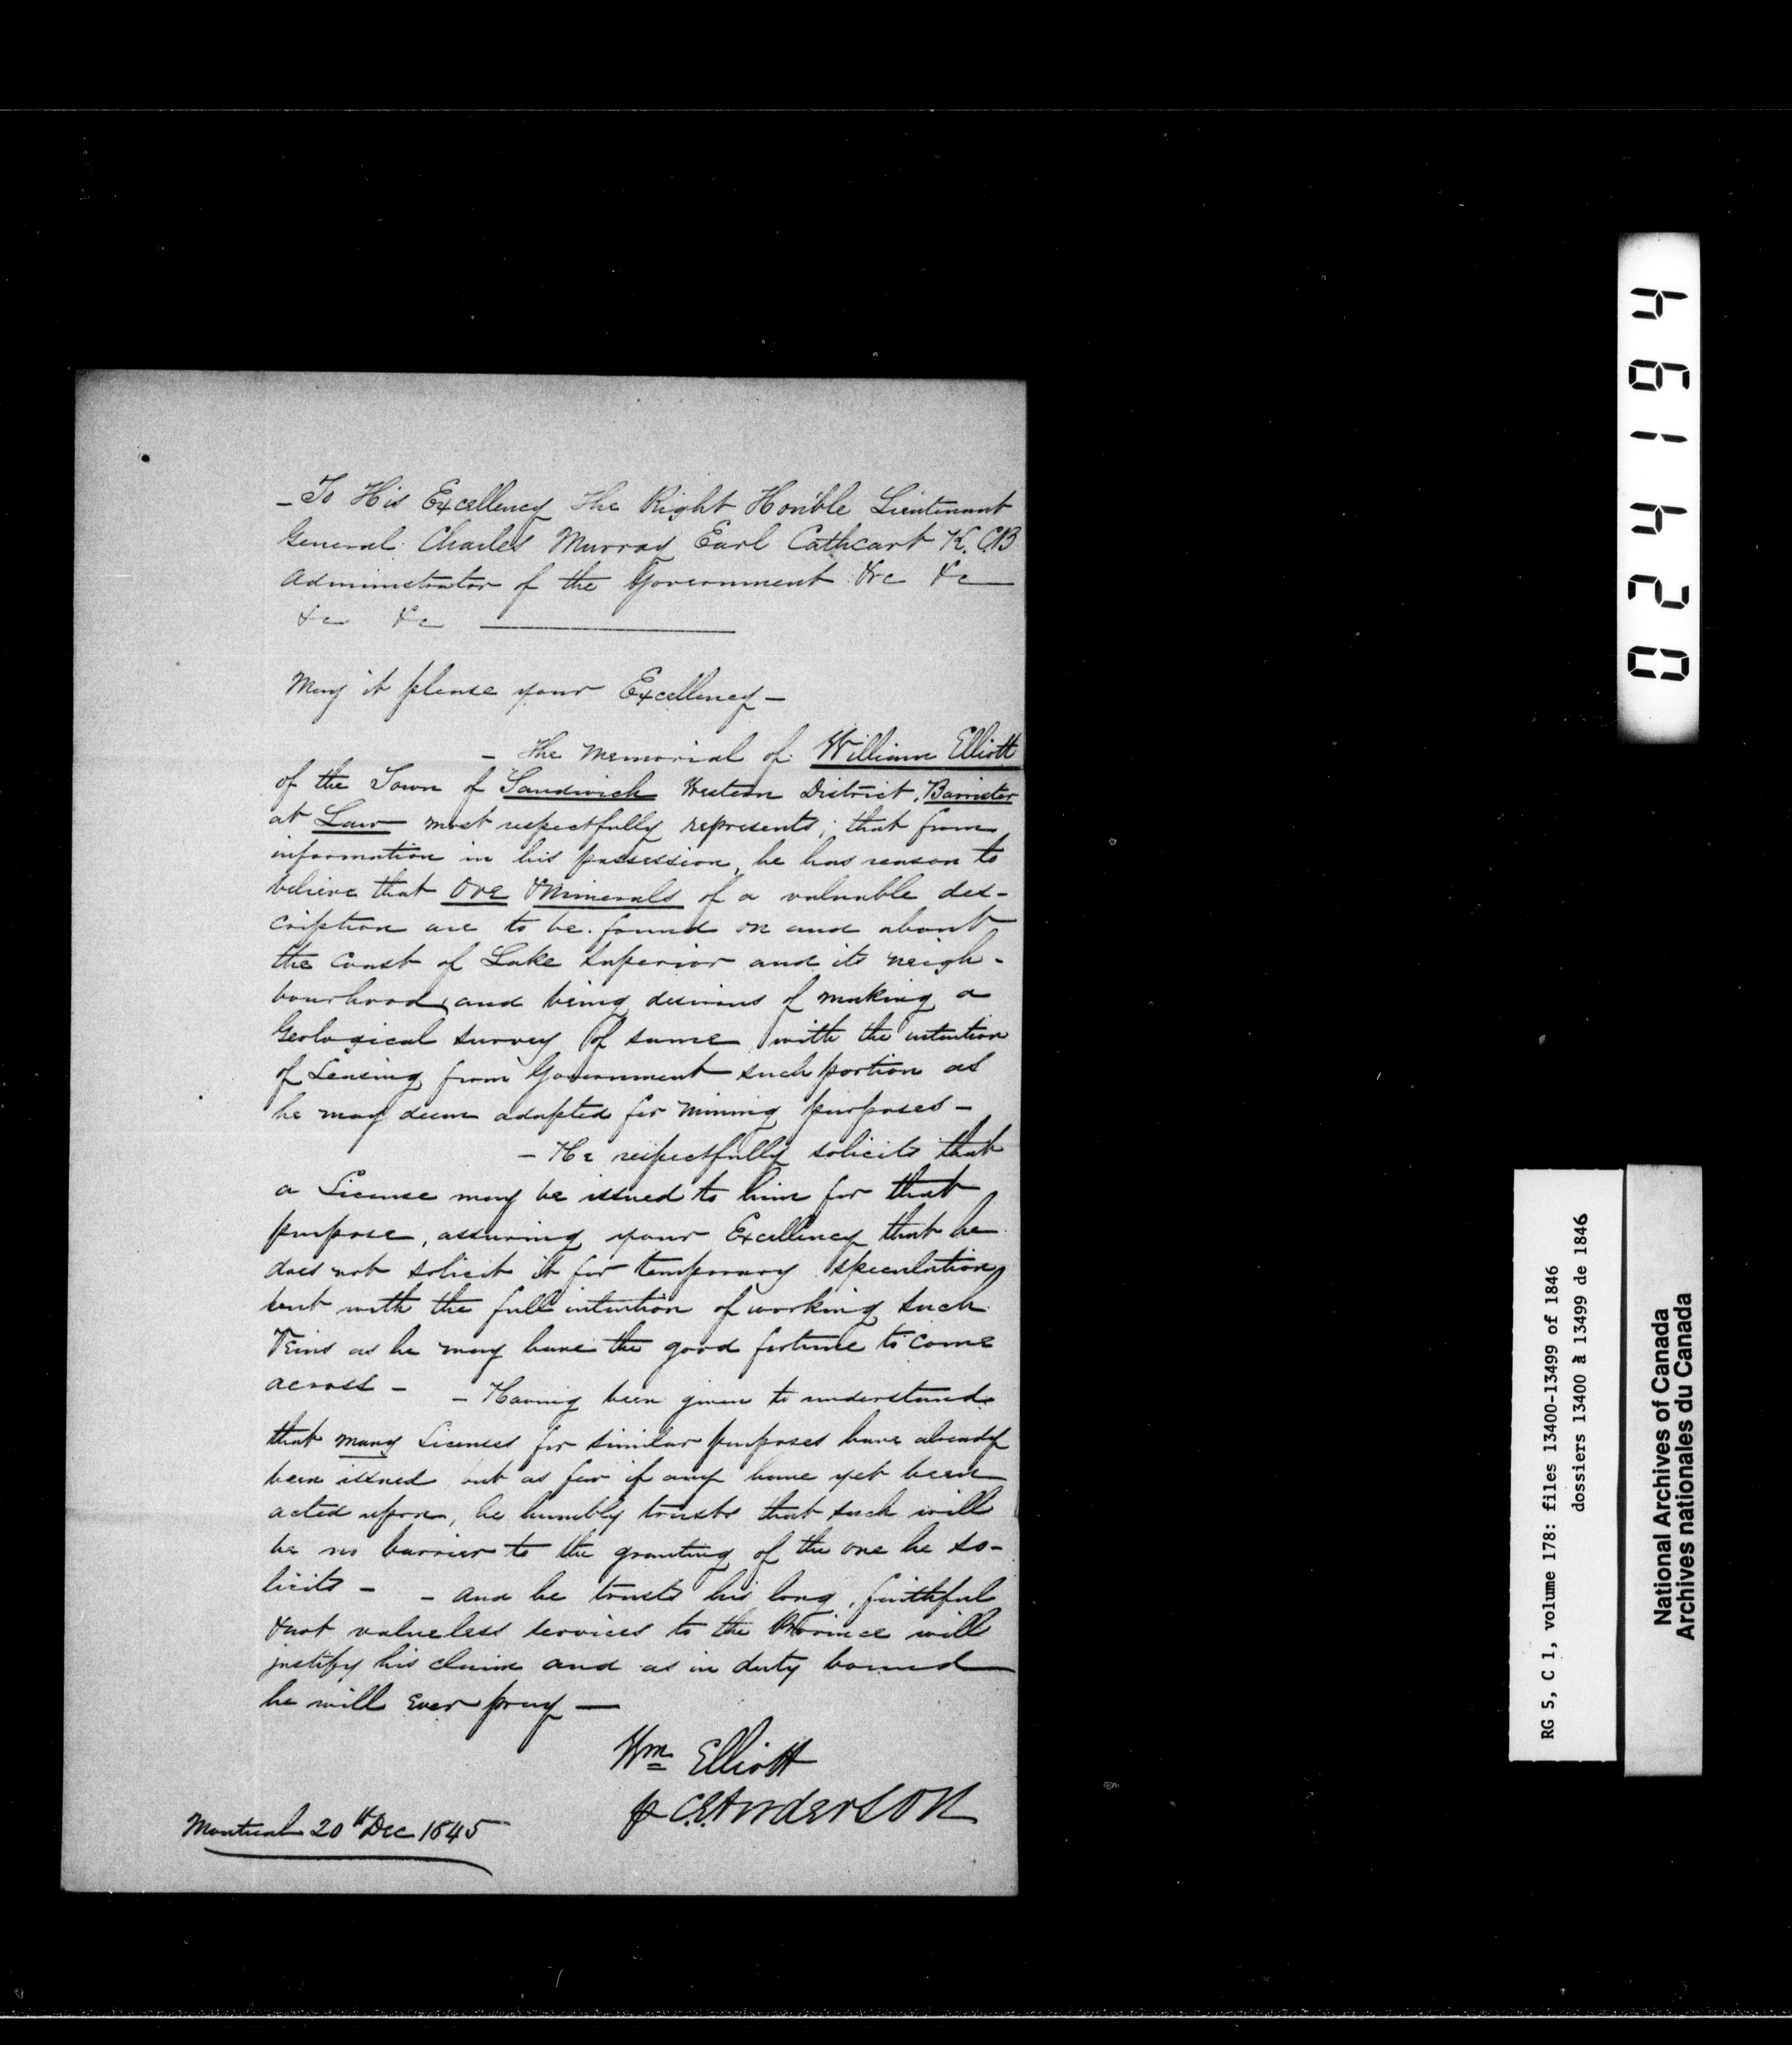 – To His Excellency The Right Hon'ble Lieutenant
General Charles Murray Earl Cathcart K.C.B
Administrator of the Government &c &c
&c &c
May it please your Excellency –
– The Memorial of William Elliott
of the Town of Sandwich Western District, Barrister
at Law most respectfully represents; that from
information in his possession, he has reason to
believe that Ore & Minerals of a valuable des-
cription are to be found on and about
the Coast of Lake Superior and its neigh-
bourhood, and being desirous of making a
Geological survey of same with the intention
of Leasing from Government such portion as
he may deem adapted for mining purposes –
– He respectfully solicits that
a License may be issued to him for that
purpose, assuring your Excellency that he
does not solicit it for temporary speculation,
but with the full intention of working such
Veins as he may have the good fortune to come
across – – Having been given to understand
that many Licenses for similar purposes have already
been issued but as few if any have yet been
acted upon, he humbly trusts that such will
be no barrier to the granting of the one he so-
licits – – And he trusts his long, faithful
& not valueless services to the Province will
justify his claim and as in duty bound
he will ever pray —
Wm Elliott
p C.E. Anderson
Montreal 20th Dec 1845
024194
RG 5, C 1, volume 178: files 13400-13499 of 1846
dossiers 13400 à 13499 de 1846
National Archives of Canada
Archives nationales du Canada